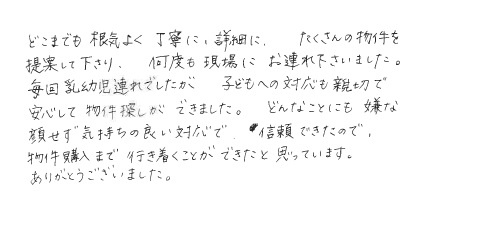 どこまでも根気よく丁寧に、詳細に、たくさんの物件を
提案して下さり、何度も現場にお連れ下さいました。
毎回乳幼児連れでしたが子どもへの対応も親切で
安心して物件探しができました。どんなことにも嫌な
顔せず気持ちの良い対応で、信頼できたので、
物件購入まで行き着くことができたと思っています。
ありがとうございました。